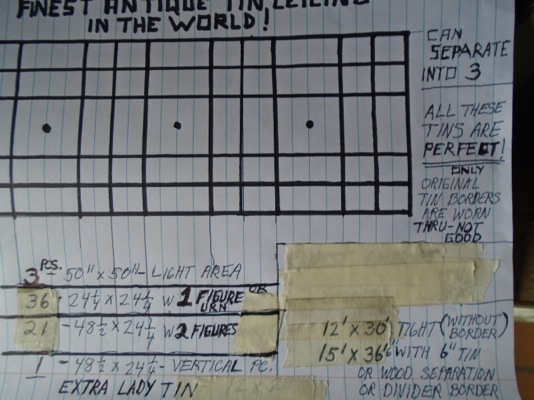 FINEST ANTIQUE TIN CEILING
IN THE WORLD!
CAN
SEPARATE
INTO 3
ALL THESE
TINS ARE
PERFECT!
ONLY
ORIGINAL
TIN BORDERS
ARE WORN
THRU-NOT
GOOD
3 PCS. - 50" X 50" - LIGHT AREA
36 - 24 1/4 X 24 1/4 W 1 FIGURE OR
URN
21 - 48 1/2 X 24 1/4 W 2 FIGURES
1 - 48 1/2 X 24 1/4 - VERTICAL PC.
EXTRA LADY TIN
12' X 30' TIGHT (WITHOUT
BORDER)
15' X 36'6" WITH 6" TIN
OR WOOD SEPARATION
OR DIVIDER BORDER